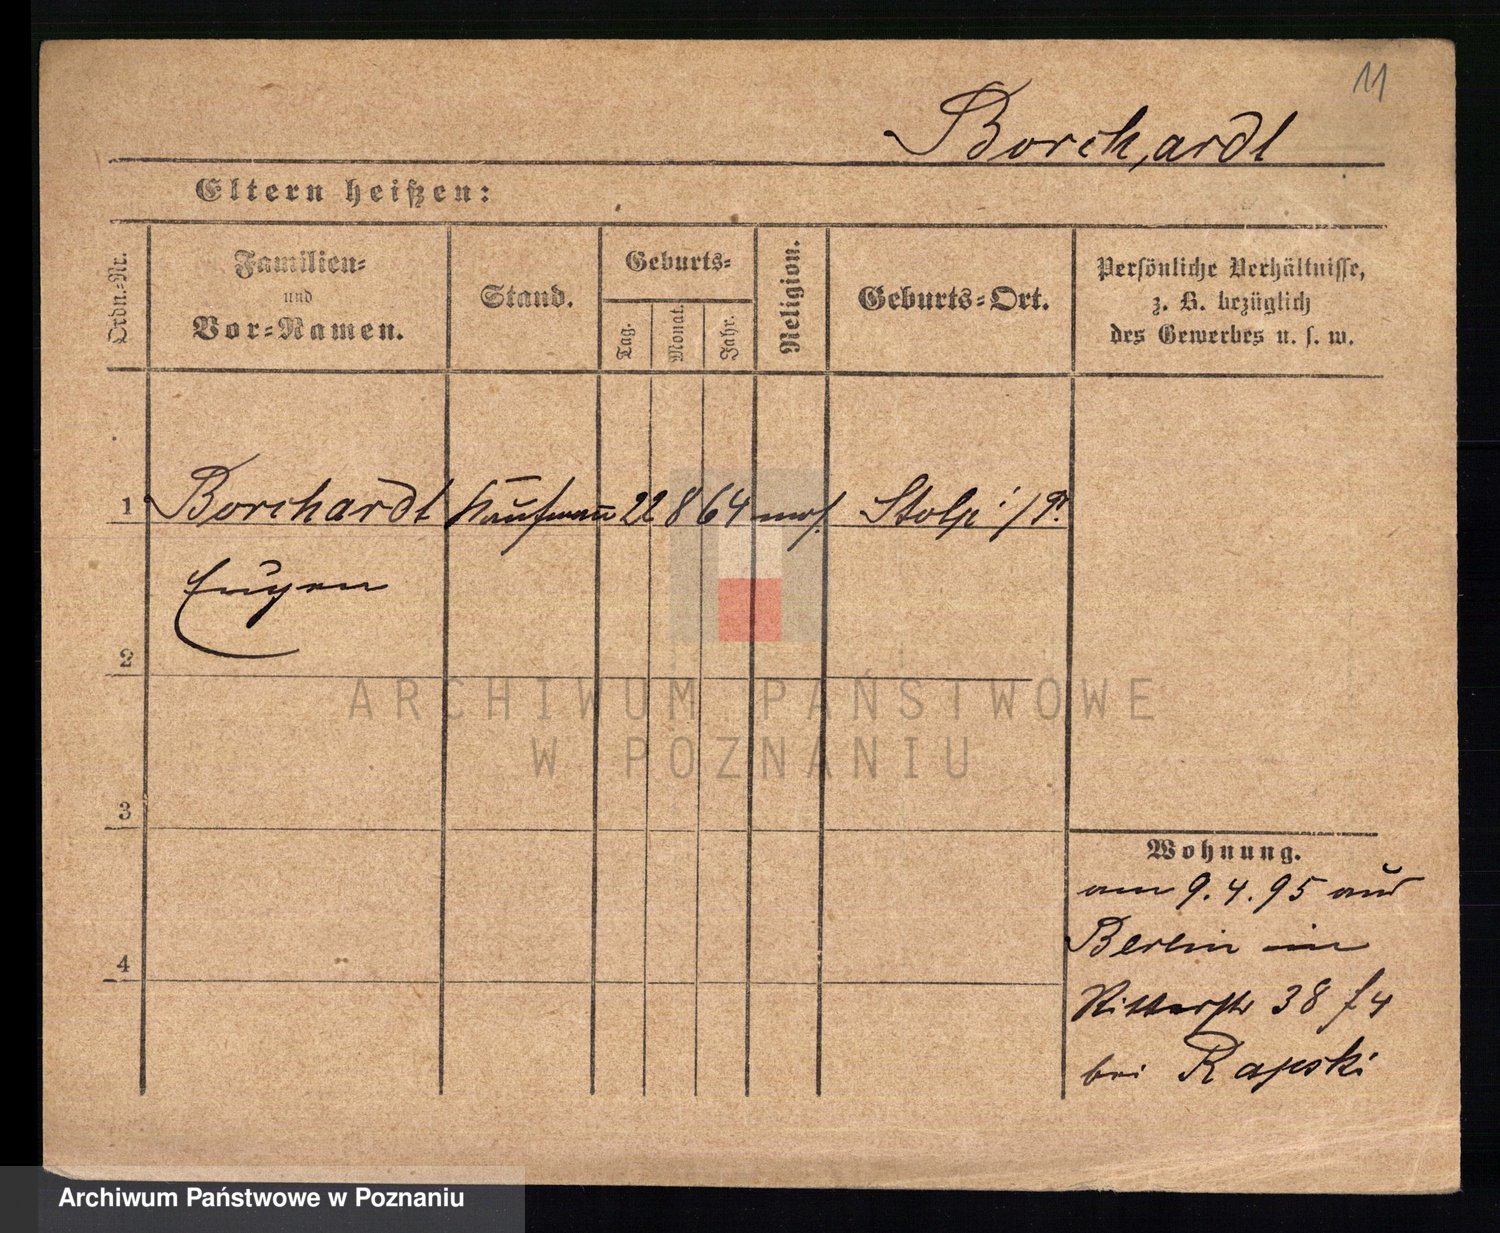 11
Borchardt
Eltern heißen:
Ordn.-Nr.
Familien-
und
Vor-Namen.
Stand.
Geburts-
Tag.
Monat.
Jahr.
Religion.
Geburts-Ort.
Persönliche Verhältnisse,
z. B. bezüglich
des Gewerbes u. s. w.
1 Borchardt Kaufmann 22 8 64 mos. Stolp i/P.
Eugen
2
ARCHIWUM PAŃSTWOWE
W POZNANIU
3
4
Wohnung.
am 9.4.95 aus
Berlin in
Ritterstr 38
bei Rapski
Archiwum Państwowe w Poznaniu